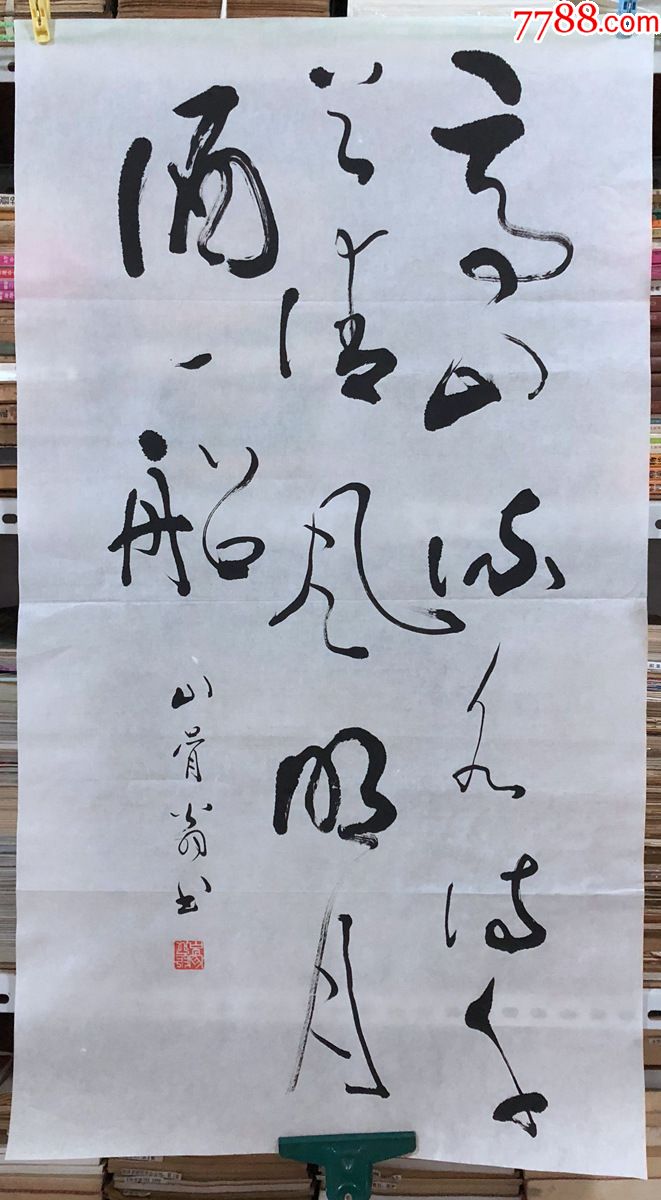 7788.com
高山流水诗千
首清风明月
酒一船
山骨翁书